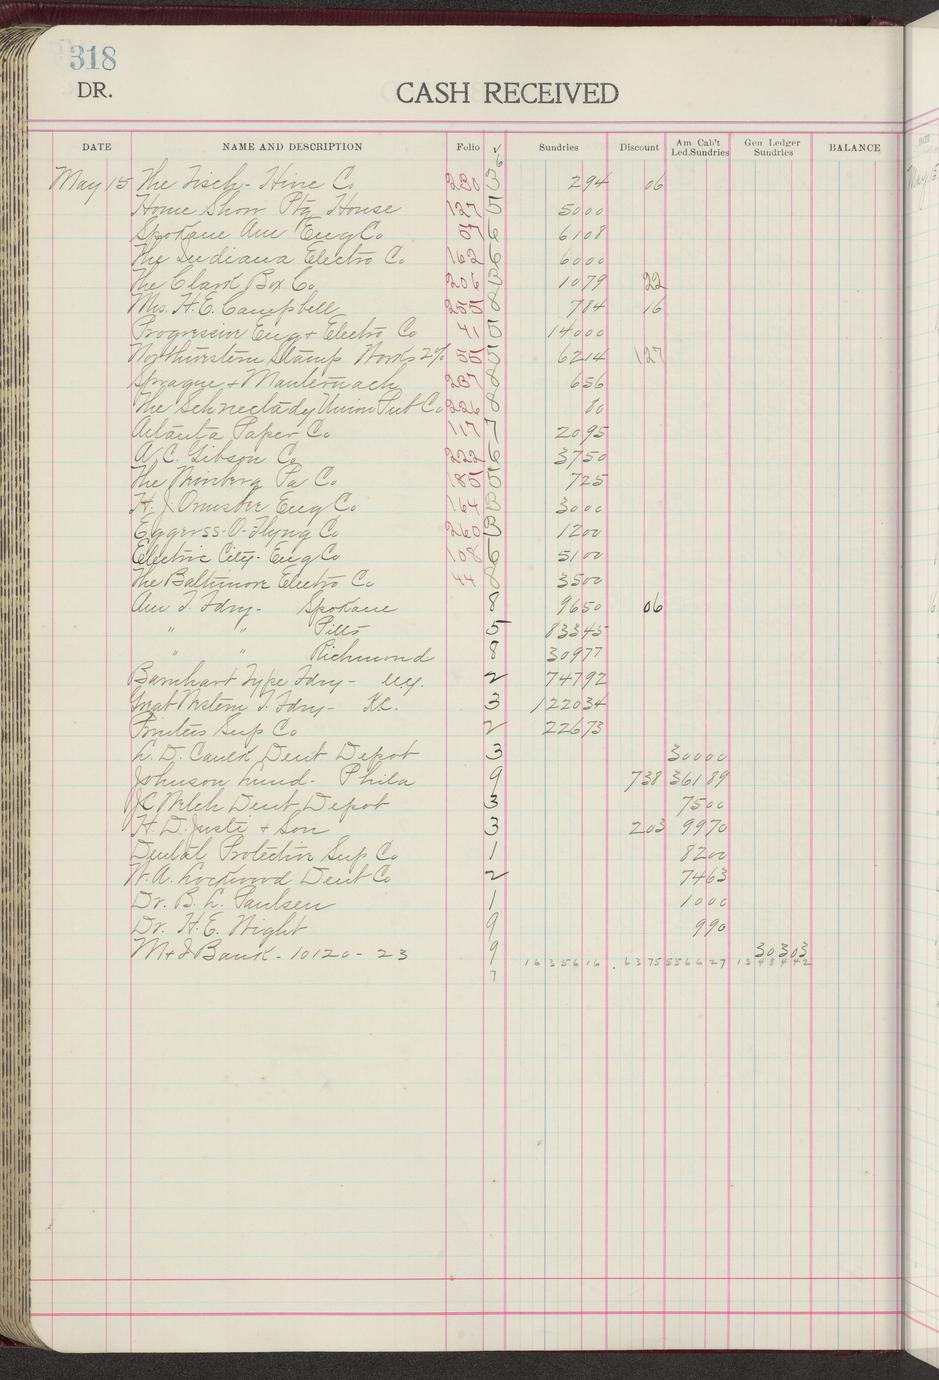 318
DR.
CASH RECEIVED
DATE NAME AND DESCRIPTION Folio Sundries Discount Am Cab't Led.Sundries Gen Ledger Sundries BALANCE
May 15 The Tisch-Hine Co 280 3 294 06
Home Show Ptg House 127 5 5000
Spokane Am Eng Co 57 6 6108
The Indiana Electro Co 162 6 6000
The Clark Box Co 206 3 1079 22
Mrs. H. E. Campbell 255 8 784 16
Progressive Eng + Electro Co 41 5 14000
Northwestern Stamp Works 2% 55 5 6214 127
Sprague + 237 8 656
The Schnectady Union Pub Co 226 8 80
Atlanta Paper Co 117 7 2095
A. C. Gibson Co 222 6 3750
The Pa Co 185 5 725
H. J. Ormsbee Eng Co 164 3 3000
Eggerss-O-Flyng Co 260 3 1200
Electric City Eng Co 108 6 5100
The Baltimore Electro Co 44 8 3500
Am T. Fdry - Spokane 8 9650 06
" " Pitts 5 83345
" " Richmond 8 30977
Barnhart Type Fdry - 2 74792
Great Western T. Fdry - K.C. 3 122034
Printers Sup Co 2 22673
L. D. Caulk Dent Depot 3 30000
Johnson Lund - Phila 9 738 36189
J C Welch Dent Depot 3 7500
H. D. Justi + Son 3 203 9970
Dental Protective Sup Co 1 8200
W. A. Lockwood Dent Co 2 7463
Dr. B. L. Paulsen 1 1000
Dr. H. E. Wight 9 990
M + I Bank - 10120 - 23 9 30303
7 16 3 5 6 16 6375 556627 13 4 8 4 42